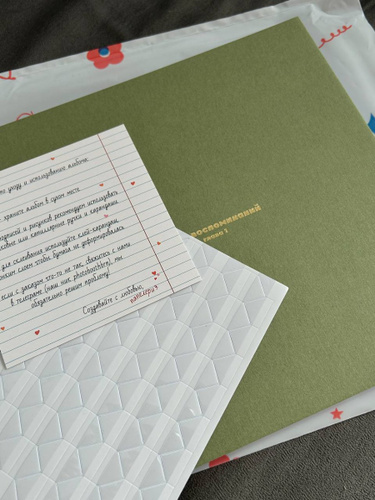 уходу и использованию альбома
храните альбом в сухом месте
и рисунков рекомендуем использовать
или капиллярные ручки и карандаши
для склеивания используйте клей-карандаш
слоем чтобы бумага не деформировалась
если с заказом что-то не так, свяжитесь с нами
в телеграме (наш ник
обязательно решим проблему!
Создавайте с любовью,
воспоминаний